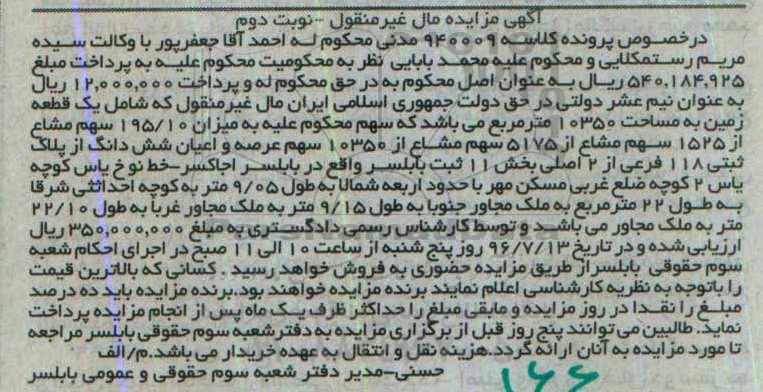 آگهی مزایده مال غیرمنقول -نوبت دوم
درخصوص پرونده کلاسه ۹۴۰۰۰۹ مدنی محکوم له احمد آقا جعفرپور با وکالت سیده
مریم رستمکلایی و محکوم علیه محمد بابایی نظر به محکومیت محکوم علیه به پرداخت مبلغ
۵۴۰,۱۸۴,۹۲۵ ریال به عنوان اصل محکوم به در حق محکوم له و پرداخت ۱۲,۰۰۰,۰۰۰ ریال
به عنوان نیم عشر دولتی در حق دولت جمهوری اسلامی ایران مال غیرمنقول که شامل یک قطعه
زمین به مساحت ۱۰۳۵۰ مترمربع می باشد که سهم محکوم علیه به میزان ۱۹۵/۱۰ سهم مشاع
از ۱۵۲۵ سهم مشاع از ۵۱۷۵ سهم مشاع از ۱۰۳۵۰ سهم عرصه و اعیان شش دانگ از پلاک
ثبتی ۱۱۸ فرعی از ۲ اصلی بخش ۱۱ ثبت بابلسر واقع در بابلسر اجاکسر-خط نوخ یاس کوچه
یاس ۲ کوچه ضلع غربی مسکن مهر با حدود اربعه شمالا به طول ۹/۰۵ متر به کوچه احداثی شرقا
به طول ۲۲ مترمربع به ملک مجاور جنوبا به طول ۹/۱۵ متر به ملک مجاور غربا به طول ۲۲/۱۰
متر به ملک مجاور می باشد و توسط کارشناس رسمی دادگستری به مبلغ ۳۵۰,۰۰۰,۰۰۰ ریال
ارزیابی شده و در تاریخ ۹۶/۷/۱۳ روز پنج شنبه از ساعت ۱۰ الی ۱۱ صبح در اجرای احکام شعبه
سوم حقوقی بابلسر از طریق مزایده حضوری به فروش خواهد رسید . کسانی که بالاترین قیمت
را باتوجه به نظریه کارشناسی اعلام نمایند برنده مزایده خواهند بود.برنده مزایده باید ده درصد
مبلغ را نقدا در روز مزایده و مابقی مبلغ را حداکثر ظرف یک ماه پس از انجام مزایده پرداخت
نماید. طالبین می توانند پنج روز قبل از برگزاری مزایده به دفتر شعبه سوم حقوقی بابلسر مراجعه
تا مورد مزایده به آنان ارائه گردد.هزینه نقل و انتقال به عهده خریدار می باشد.م/الف
حسنی-مدیر دفتر شعبه سوم حقوقی و عمومی بابلسر
۱۶۶